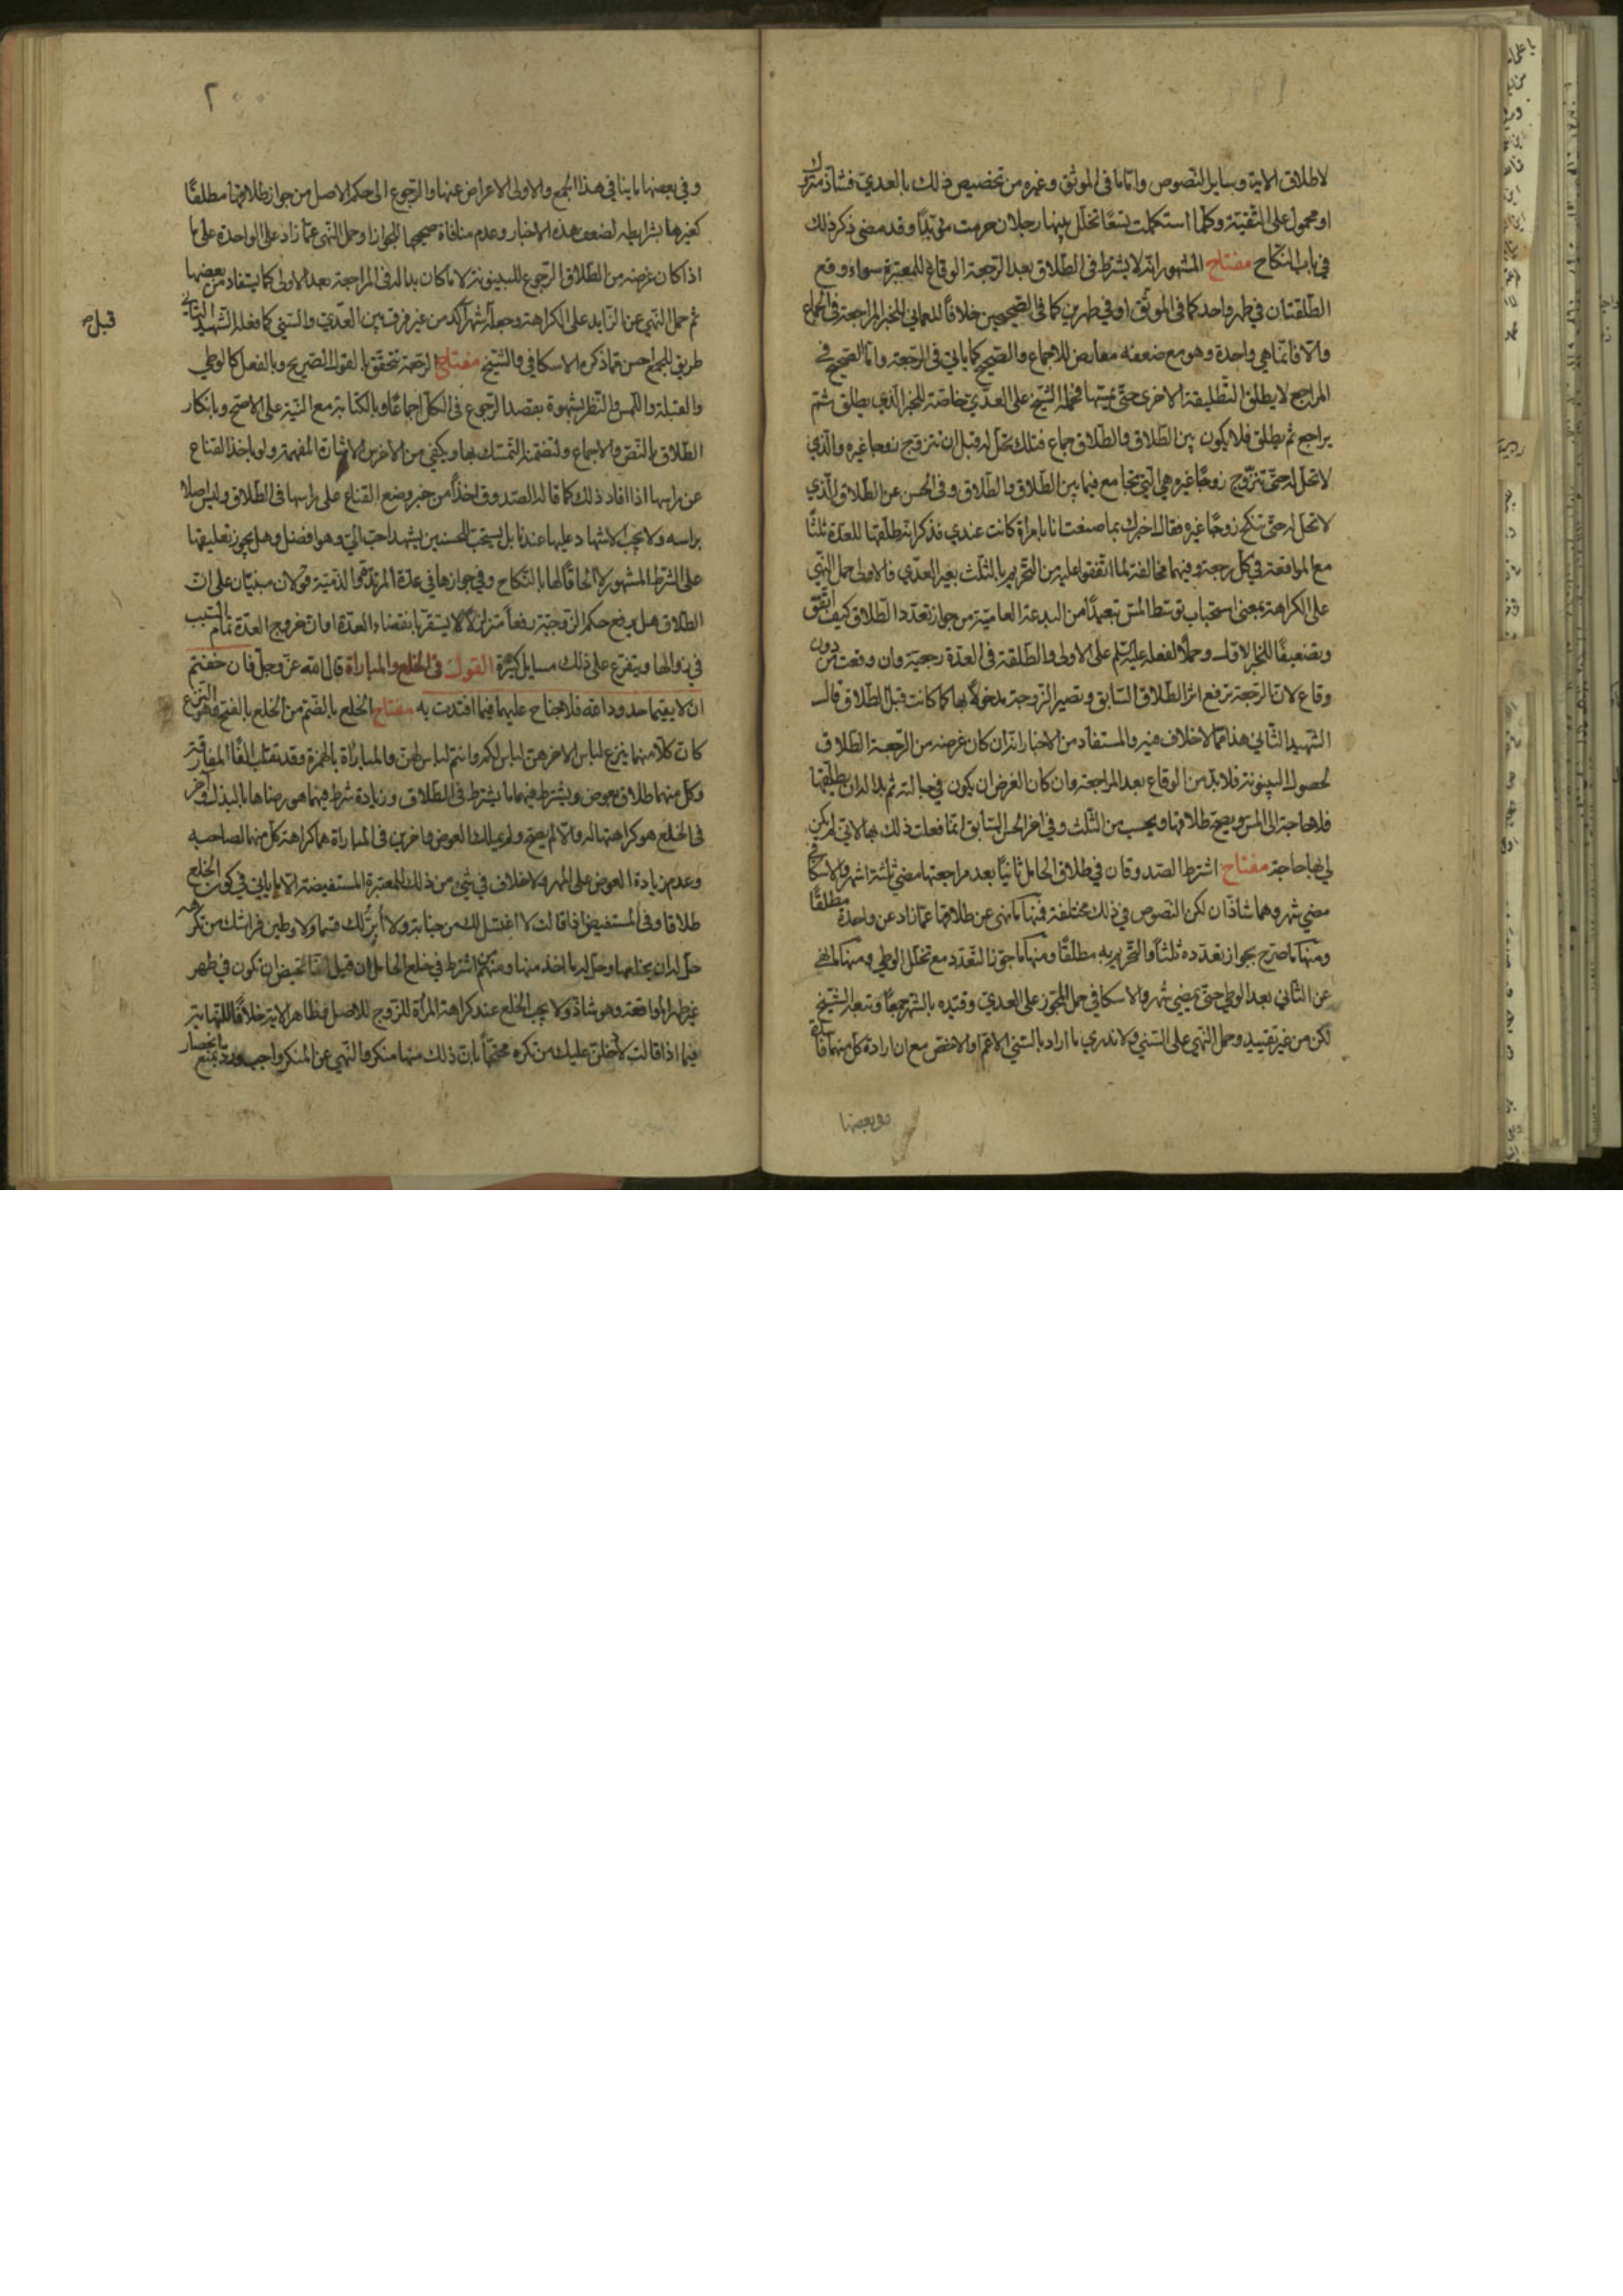 لاطلاق الاية وسايل النصوص واما ما فى الموثق وغيره من تخصيص ذلك بالعدي فشاذ متروك
او محمول على التقية وكلما استكملت تسعًا تخلل بينها رجلان حرمت مؤبدًا وقد مضى ذكر ذلك
في باب النكاح مفتاح المشهور انه لا يشترط فى الطلاق بعد الرجعة الوقاع للمعتبرة سواء وقع
الطلقتان في طهر واحد كما فى الموثق او في طهرين كما فى الصحيحين خلافًا للعماني للخبر المراجعة فى الجماع
والا فانما هي واحدة وهو مع ضعفه معارض للاجماع والصحيح كما ياتي فى الرجعة واما الصحيح في
المراجع لا يطلق التطليقة الاخرى حتى يمسها فحمله الشيخ على العدي خاصة للخبر الذي يطلق ثم
يراجع ثم يطلق فلا يكون بين الطلاق والطلاق جماع فتلك تحل له قبل ان تتزوج زوجا غيره والذي
لا تحل له حتى تتزوج زوجًا غيره هي التي تجامع فيما بين الطلاق والطلاق وفى الحسن عن الطلاق الذي
لا تحل له حتى تنكح زوجًا غيره فقال اخبرك بما صنعت انا بامراة كانت عندي فذكر انه طلقها للعدة ثلثًا
مع المواقعة في كل رجعة وفيهما مخالفة لما اتفقوا عليه من التحريم بالثلث بغير العدي فالاولى حمل النهي
على الكراهة بمعنى استحباب توسط المس تبعيدًا من البدعة العامية من جواز تعدد الطلاق كيف اتفق
وتضعيفًا للخبر الاول وحملًا لفعله عليه السلم على الاولى والطلقة فى العدة رجعية وان وقعت من دون
وقاع لان الرجعة ترفع اثر الطلاق السابق وتصير الزوجة مدخولًا بها كما كانت قبل الطلاق قال
الشهيد الثاني هذا مما لا خلاف فيه والمستفاد من الاخبار انه ان كان غرضه من الرجعة الطلاق
لحصول البينونة فلا بد من الوقاع بعد المراجعة وان كان الغرض ان يكون في حبالته ثم بدا له ان يطلقها
فلا حاجة الى المس ويصح طلاقها ويحسب من الثلث وفي اخر الحسن السابق انما فعلت ذلك بها لانى لم يكن
لي بها حاجة مفتاح اشترط الصدوقان في طلاق الحامل ثانيًا بعد مراجعتها مضي ثلثة اشهر والاسكافي
مضي شهر وهما شاذان لكن النصوص في ذلك مختلفة فمنها ما نهى عن طلاقها عما زاد عن واحدة مطلقًا
ومنها ما صرح بجواز تعدده ثلثًا والتحريم به مطلقًا ومنها ما جوز التعدد مع تخلل الوطي ومنها ما نهى
عن الثاني بعد الوطي حتى يمضي شهر والاسكافي حمل المجوز على العدي وقيده بالشهر جمعًا وتبعه الشيخ
لكن من غير تقييد وحمل النهي على السني ولا ندري ما اراد بالسني الاعم او الاخص مع ان ارادة كل منهما فاسدة
وفى بعضها
٢٠٠
وفي بعضها ما ينافي هذا الجمع والاولى الاعراض عنها والرجوع الى حكم الاصل من جواز طلاقها مطلقًا
كغيرها بشرايطه لضعف هذه الاخبار وعدم منافاة صحيحها للجواز او حمل النهي عما زاد على الواحدة على ما
اذا كان غرضه من الطلاق الرجوع للبينونة لا ما كان بدا له فى المراجعة بعد الاولى كما يستفاد من بعضها
ثم حمل النهي عن الزايد على الكراهة وجعله قبل شهر آكد من غير فرق بين العدي والسني كما فعله الشهيد الثاني
قبل صح
طريق للجمع احسن مما ذكره الاسكافي والشيخ مفتاح الرجعة تتحقق بالقول الصريح وبالفعل كالوطي
والقبلة واللمس والنظر بشهوة بقصد الرجوع فى الكل اجماعًا وبالكتابة مع النية على الاصح وبانكار
الطلاق بالنص والاجماع ولتضمنه التمسك بها ويكفي من الاخرس الاشارات المفهمة ولو باخذ القناع
عن راسها اذا افاد ذلك كما قاله الصدوق اخذًا من خبر وضع القناع على راسها فى الطلاق وليس صلا
براسه ولا يجب الاشهاد عليها عندنا بل يستحب للحسنين يشهد احب الي وهو افضل وهل يجوز تعليقها
على الشرط المشهور لا الحاقًا لها بالنكاح وفي جوازها في عدة المرتدة والذمية قولان مبنيان على ان
الطلاق هل يرفع حكم الزوجية رفعًا متزلزلًا لا يستقر بانقضاء العدة او ان خروج العدة تمام السبب
في زوالها ويتفرع على ذلك مسايل كثيرة القول فى الخلع والمباراة قال الله عز وجل فان خفتم
ان لا يقيما حدود الله فلا جناح عليهما فيما افتدت به مفتاح الخلع بالضم من الخلع بالفتح فهو النزع
كان كلا منهما ينزع لباس الاخر هن لباس لكم وانتم لباس لهن والمباراة بالهمزة وقد تقلب الفًا المفارقة
وكل منهما طلاق بعوض ويشترط فيهما ما يشترط فى الطلاق وزيادة شرط فيهما هو رضاها بالبذل وآخر
فى الخلع هو كراهتها له والا لم يصح ولم يملك العوض واخرين فى المباراة هما كراهة كل منهما لصاحبه
وعدم زيادة العوض على المهر ولا خلاف في شيء من ذلك للمعتبرة المستفيضة الا ما ياتي في كون الخلع
طلاقا وفى المستفيض اذا قالت لا اغتسل لك من جنابة ولا أبر لك قسما ولا وطين فراشك من تكرهه
حل له ان يخلعها وحل له ما اخذ منها ومنهم من اشترط في خلع الحامل ان قيل انها تحيض ان تكون في طهر
غير طهر المواقعة وهو شاذ ولا يجب الخلع عند كراهة المراة للزوج للاصل وظاهر الاية خلافًا للنهاية
فيما اذا قالت لأدخلن عليك من تكره محتجًا بان ذلك منها منكر والنهي عن المنكر واجب ورد بمنع انحصار